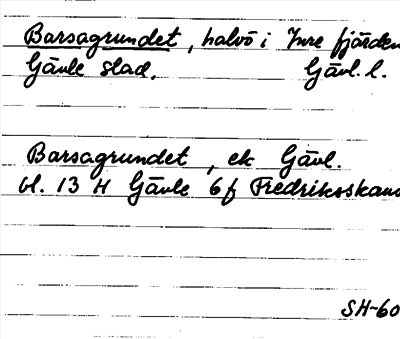 Barsagrundet, halvö i Inre fjärden
Gävle stad. Gävl. l.
Barsagrundet, ek Gävl.
bl. 13 H Gävle 6f Fredriksskans
SH-60